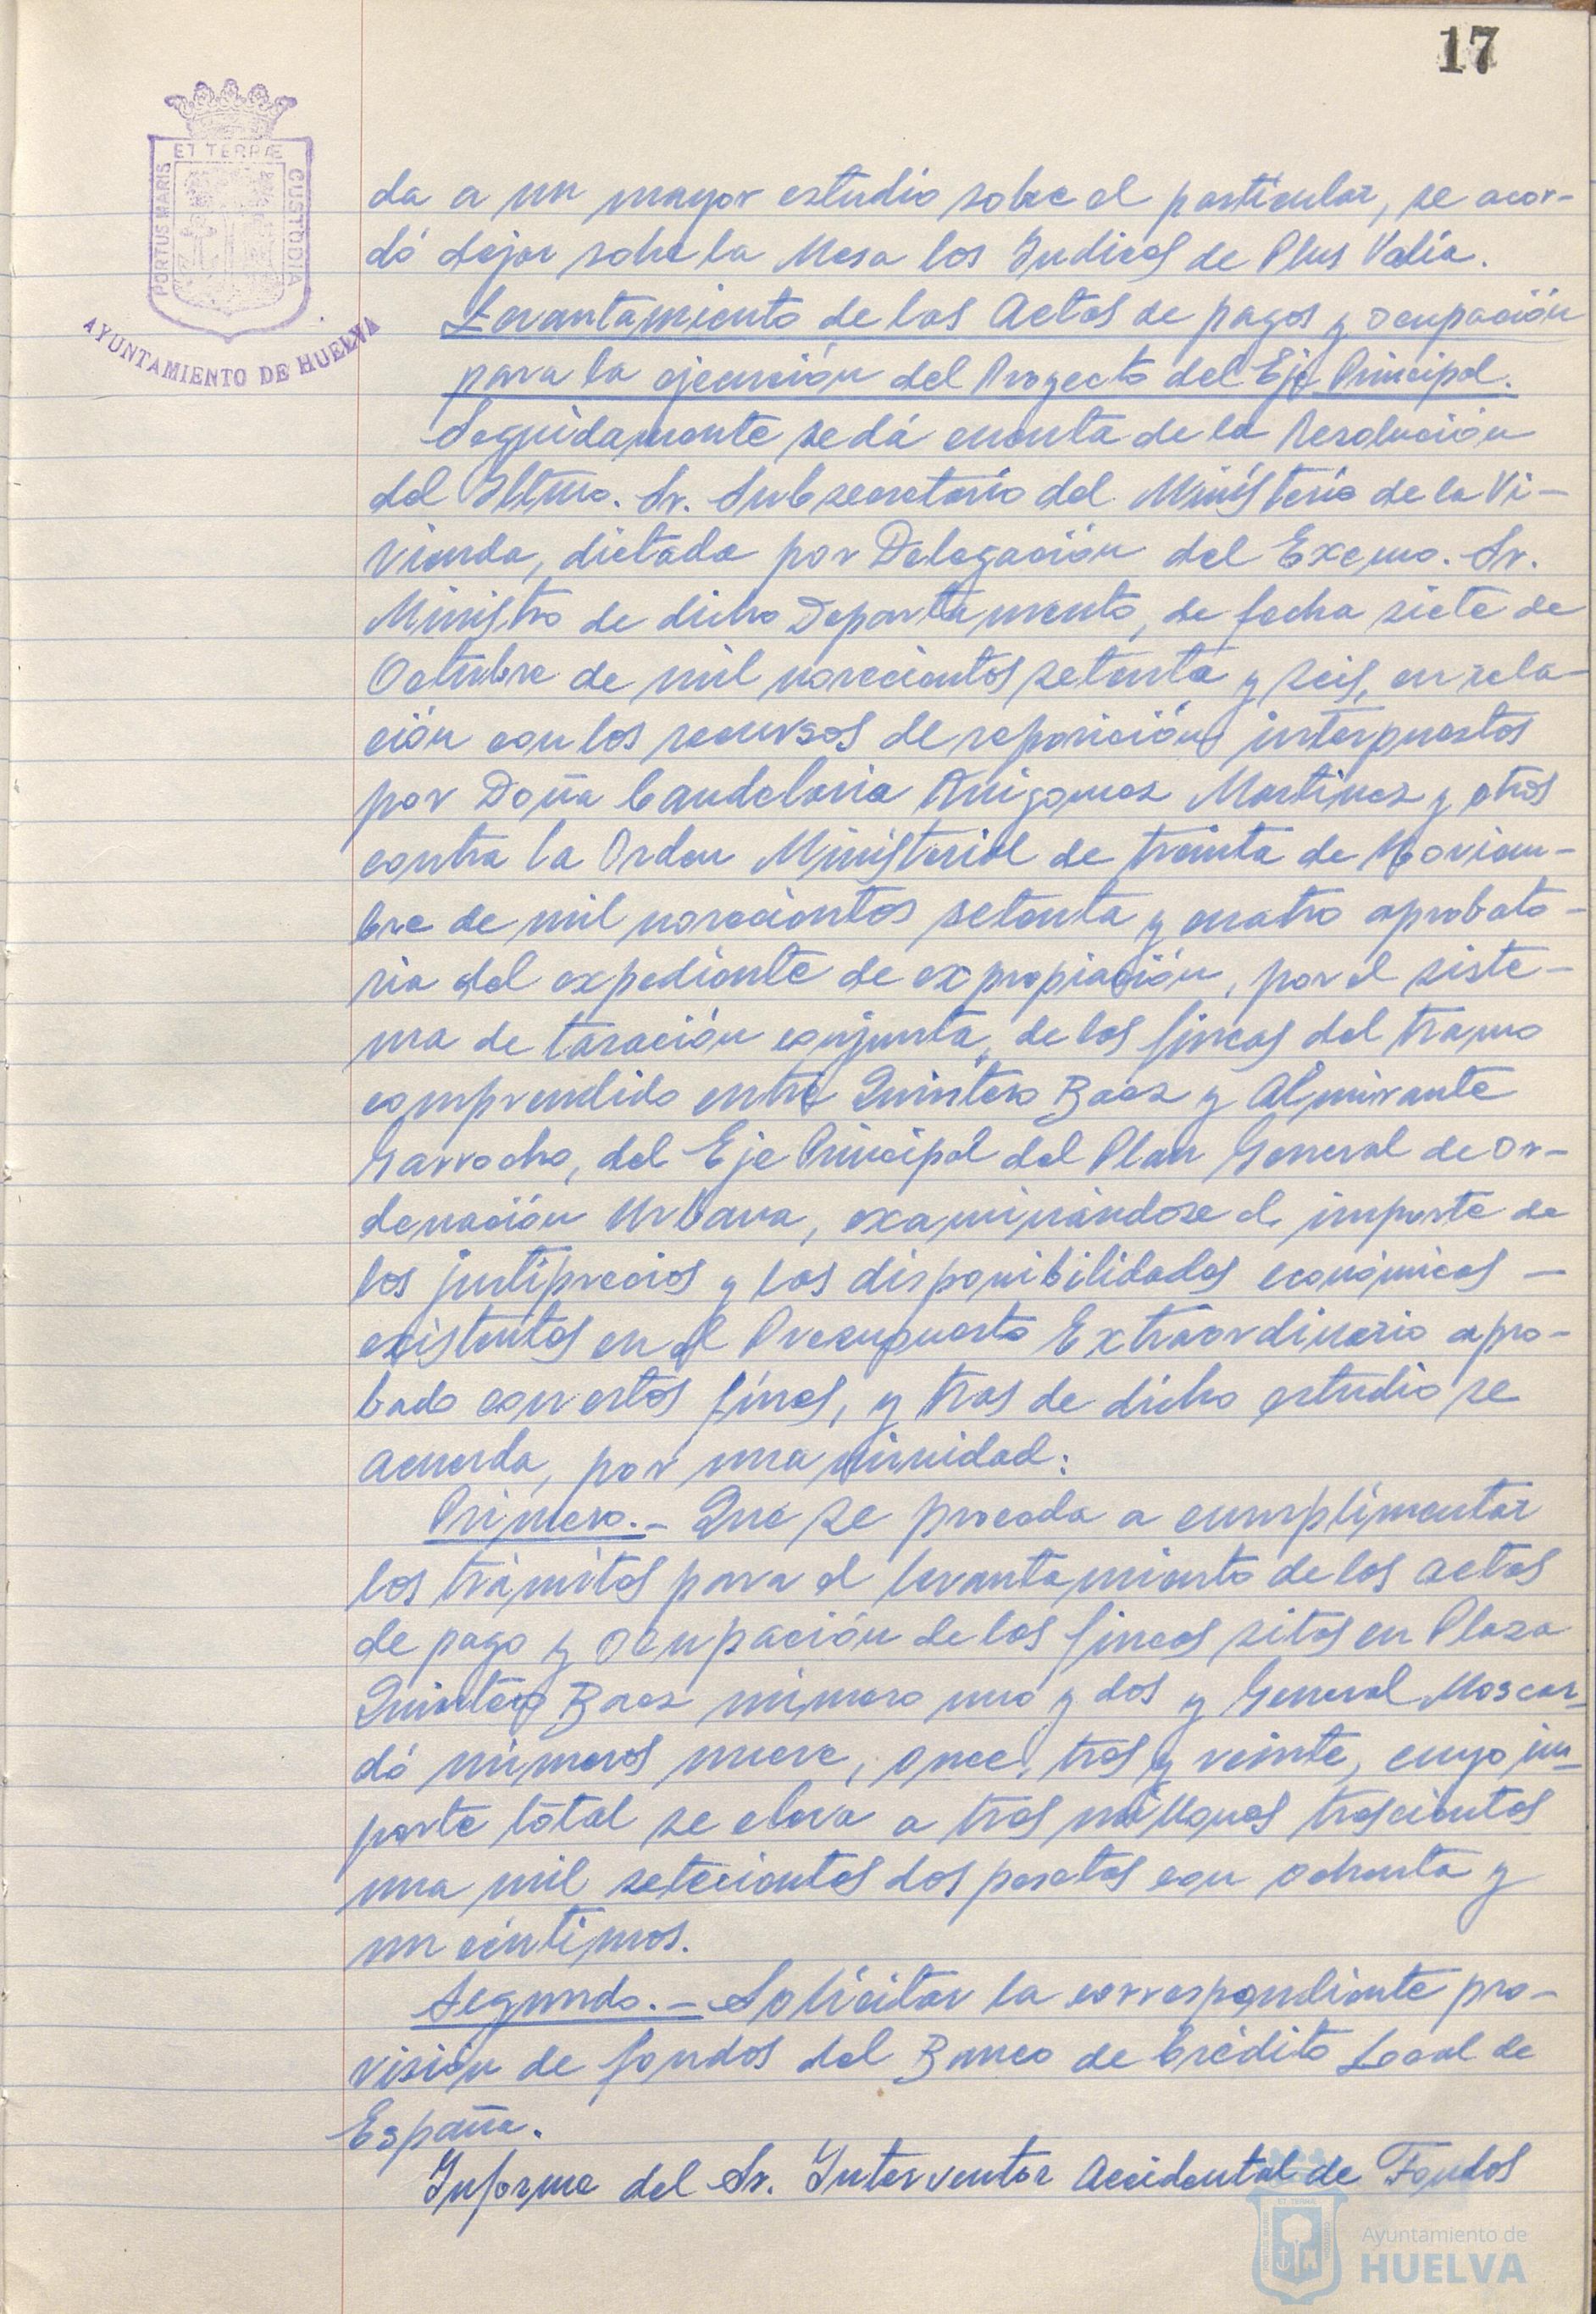 17
ET TERRÆ
PORTUS MARIS
CUSTODIA
AYUNTAMIENTO DE HUELVA
da a un mayor estudio sobre el particular, se acor-
dó dejar sobre la Mesa los Indices de Plus Valía.
Levantamiento de las Actas de pagos y ocupación
para la ejecución del Proyecto del Eje Principal.
Seguidamente se dá cuenta de la Resolución
del Iltmo. Sr. Subsecretario del Ministerio de la Vi-
vienda, dictada por Delegación del Excmo. Sr.
Ministro de dicho Departamento, de fecha siete de
Octubre de mil novecientos setenta y seis, en rela-
ción con los recursos de reposición interpuestos
por Doña Candelaria Martinez y otros
contra la Orden Ministerial de treinta de Noviem-
bre de mil novecientos setenta y cuatro aprobato-
ria del expediente de expropiación, por el siste-
ma de tasación conjunta, de las fincas del tramo
comprendido entre Quintero Baez y Almirante
Garrocho, del Eje Principal del Plan General de Or-
denación Urbana, examinándose el importe de
los justiprecios y las disponibilidades económicas -
existentes en el Presupuesto Extraordinario apro-
bado con estos fines, y tras de dicho estudio se
acuerda, por unanimidad:
Primero.- Que se proceda a cumplimentar
los trámites para el levantamiento de las actas
de pago y ocupación de las fincas sitas en Plaza
Quintero Baez número uno y dos y General Moscar-
dó números nueve, once, tres y veinte, cuyo im-
porte total se eleva a tres millones trescientas
una mil setecientas dos pesetas con ochenta y
un céntimos.
Segundo.- Solicitar la correspondiente pro-
visión de fondos del Banco de Crédito Local de
España.
Informe del Sr. Interventor Accidental de Fondos
Ayuntamiento de
HUELVA